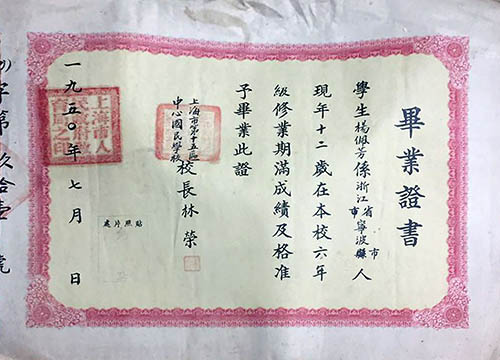 畢業證書
學生楊佩芳係浙江省市寧波市縣人
現年十二歲在本校六年
級修業期滿成績及格准
予畢業此證
上海市第十五區
中心國民學校
校長林榮
貼照片處
一九五〇年七月 日
上海市人
民政府教
育局之印
字第
號